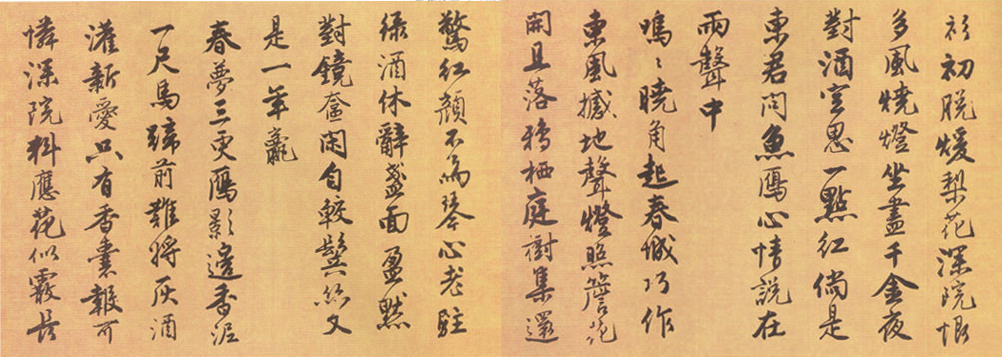 衫初脫煖梨花深院恨
多風燒燈坐盡千金夜
對酒空思一點紅倘是
東君問魚鴈心情說在
雨聲中
嗚〻曉角起春城巧作
東風撼地聲燈照簷花
開且落鴉栖庭樹集還
驚紅顏不為琴心老駐
綠酒休辭盞面盈默
對鏡奩閑自較鬢絲又
是一年贏
春夢三更鴈影邊香泥
一尺馬蹄前難將灰酒
灌新愛只有香囊報可
憐深院料應花似霰長